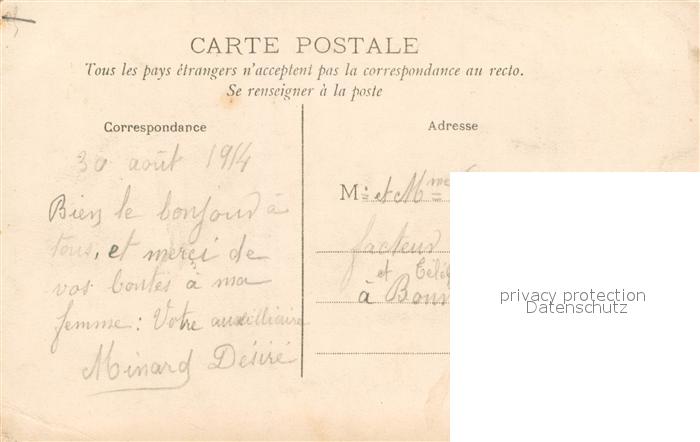 CARTE POSTALE
Tous les pays étrangers n'acceptent pas la correspondance au recto.
Se renseigner à la poste
Correspondance
30 août 1914
Bien le bonjour à
tous, et merci de
vos bontés à ma
femme : Votre auxilliaire
Minard Désiré
Adresse
M: et Mme
facteur
et Télé
à Bonn
privacy protection
Datenschutz